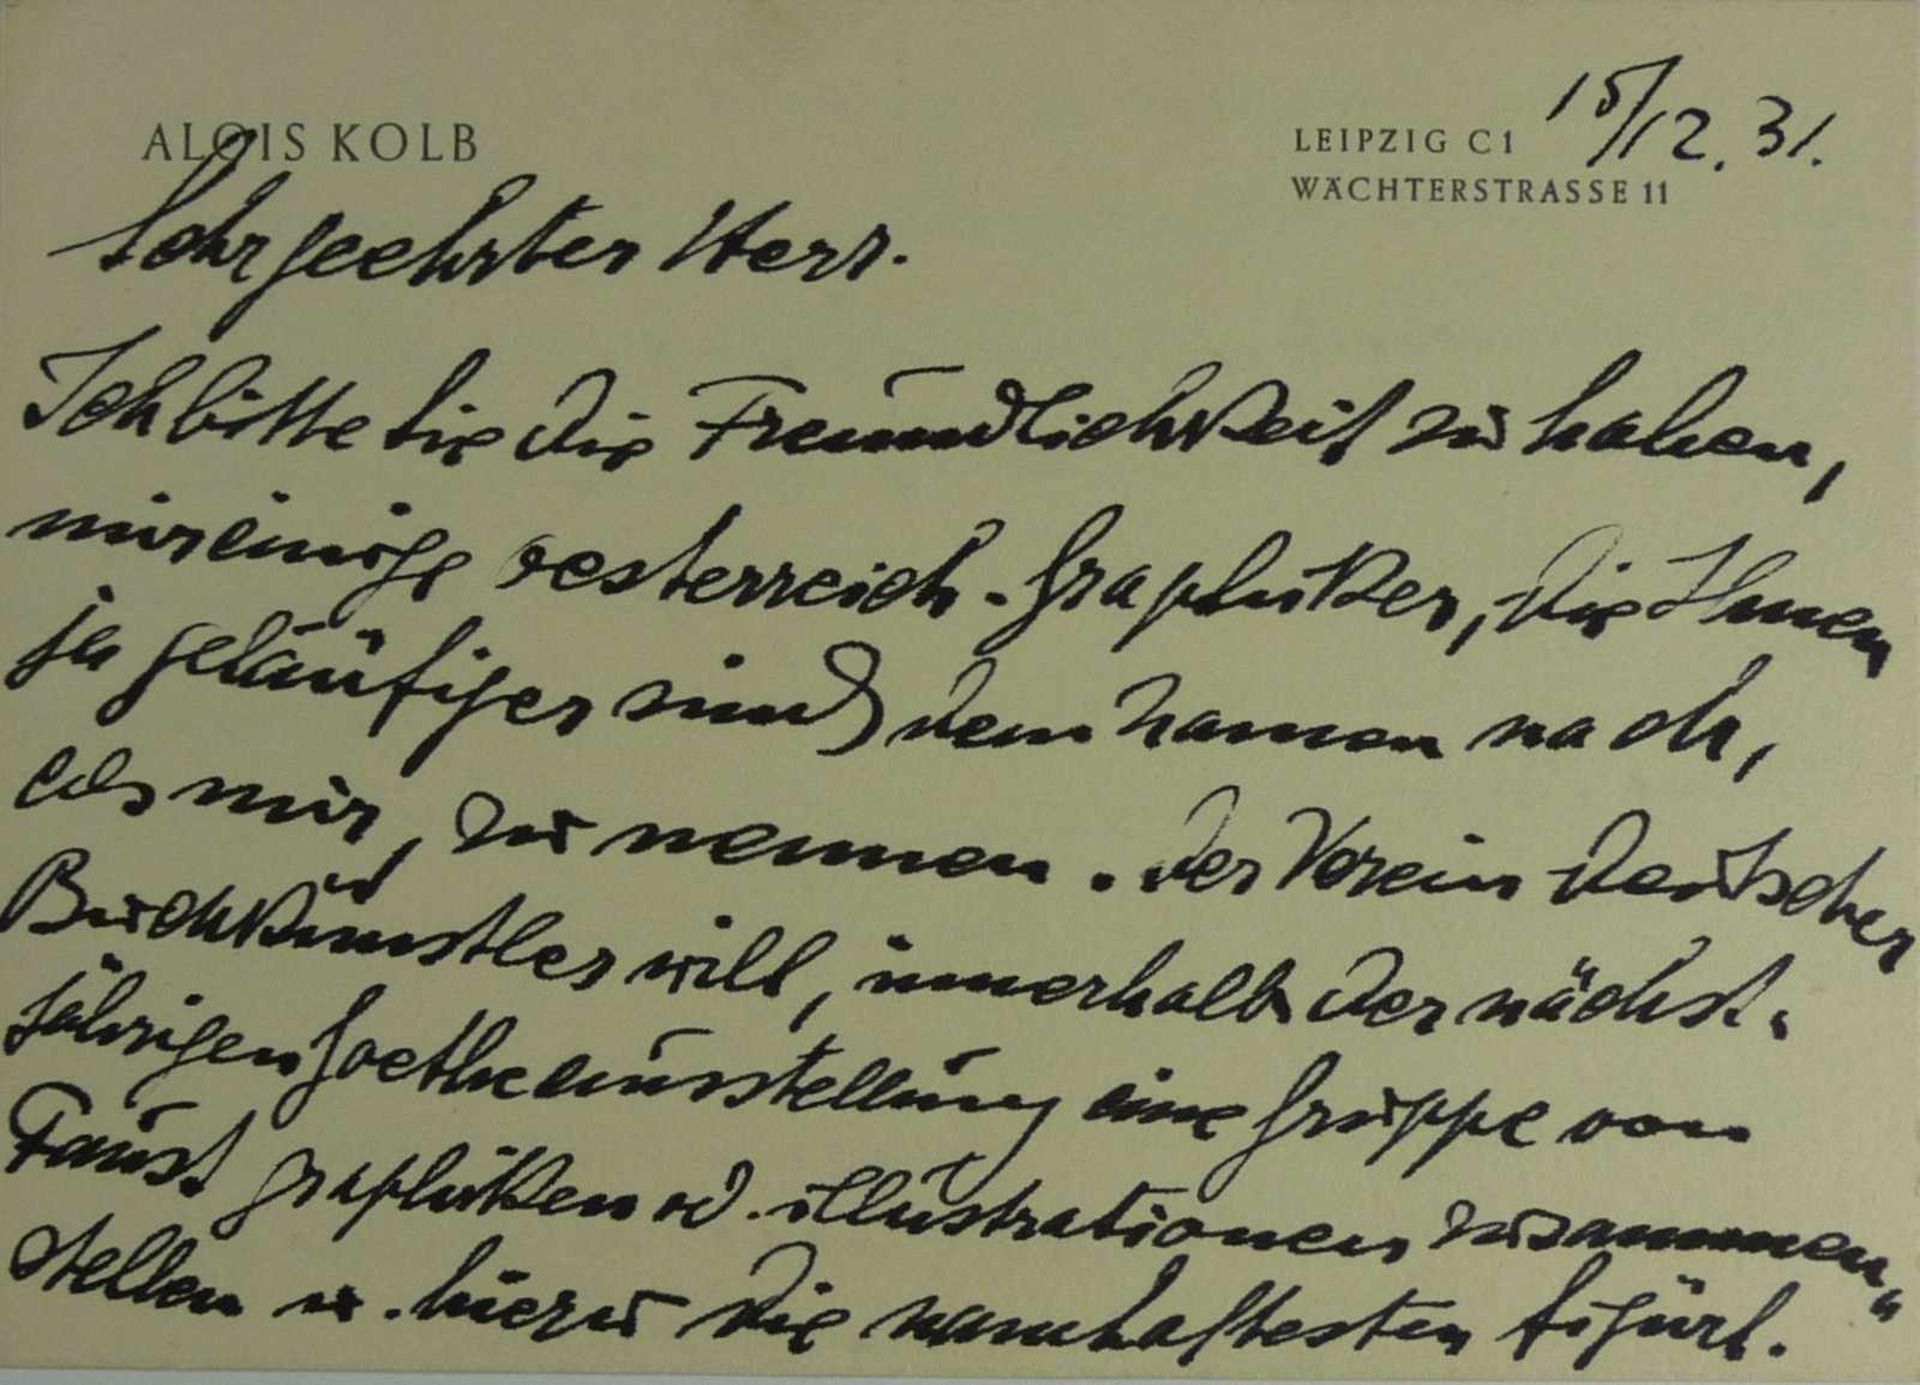 ALOIS KOLB
LEIPZIG C1 15/12. 31.
WÄCHTERSTRASSE 11
Sehr geehrter Herr.
Ich bitte Sie die Freundlichkeit zu haben,
mir einige oesterreich. Graphiker, die Ihnen
ja geläufiger sind dem Namen nach,
als mir, zu nennen. Der Verein Deutscher
Buchkünstler will, innerhalb der nächst.
jährigen Goetheausstellung eine Gruppe von
Faust graphiken od. illustrationen zusammen"
stellen u. hierzu die namhaftesten figürl.